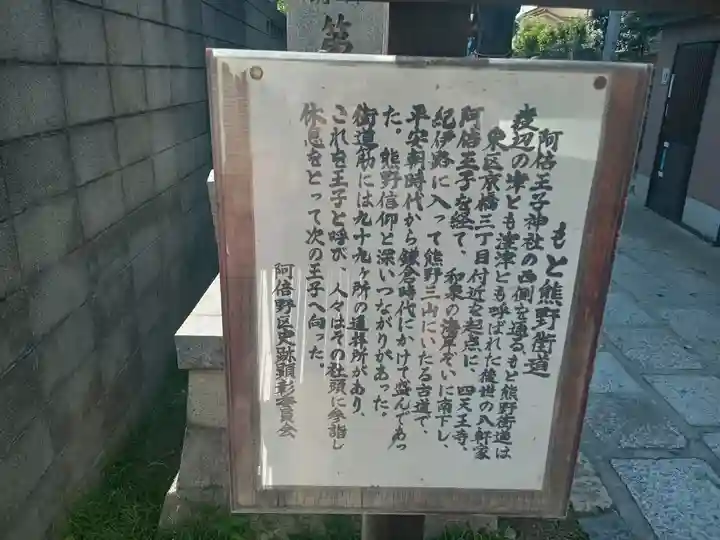 もと熊野街道
阿倍王子神社の西側を通る、もと熊野街道は
渡辺の津とも窪津とも呼ばれた後世の八軒家
東区京橋三丁目付近を起点に、四天王寺、
阿倍王子を経て、和泉の海岸ぞいに南下し、
紀伊路に入って熊野三山にいたる古道で、
平安朝時代から鎌倉時代にかけて盛んであっ
た。熊野信仰と深いつながりがあった。
街道筋には九十九ヶ所の遥拝所があり、
これを王子と呼び、人々はその社頭に参詣し
休息をとって次の王子へ向った。
阿倍野区史跡顕彰委員会
第